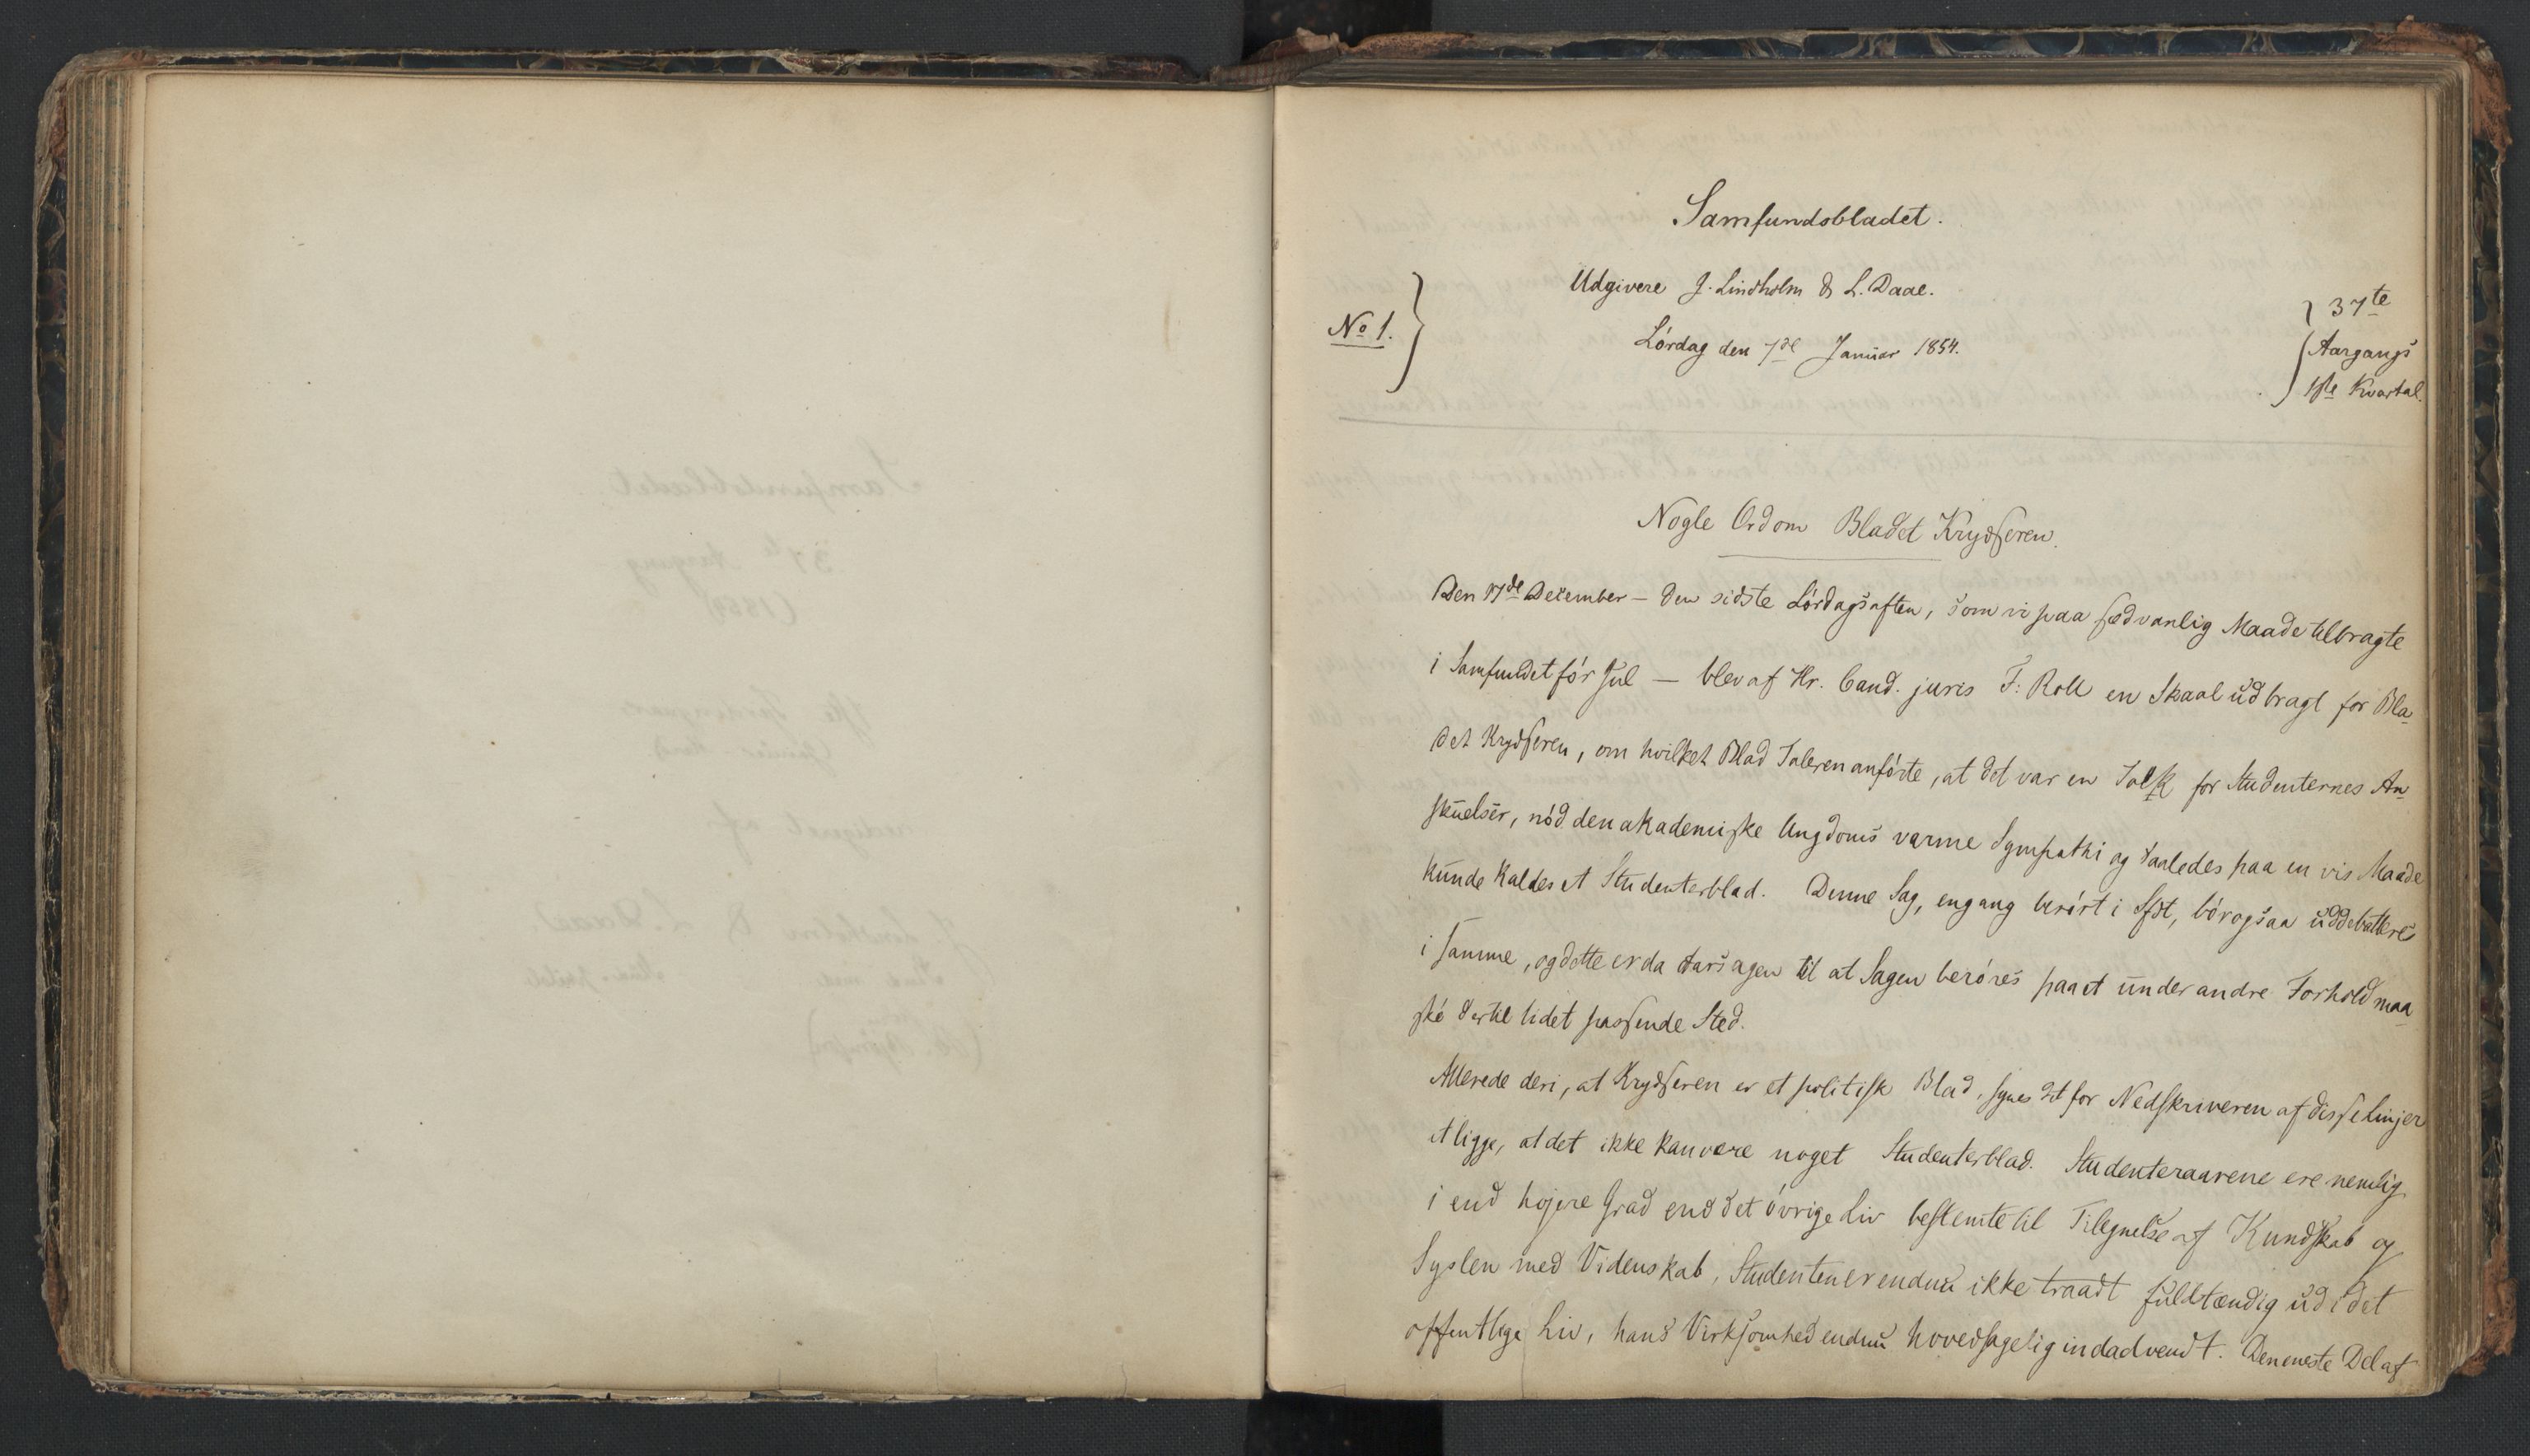 Samfundsbladet.
Udgivere J. Lindholm & L. Daae.
No 1.
Lördag den 7de Januar 1854.
37te
Aargangs
1ste Kvartal.
Nogle Ord om Bladet Krydseren.
Den 17de December – den sidste Lördagsaften, som vi paa sedvanlig Maade tilbragte
i Samfundet för Jul — blev af Hr. Cand. juris F. Roll en Skaal udbragt for Bla-
det Krydseren, om hvilket Blad Taleren anförte, at det var en Tolk for Studenternes An-
skuelser, nöd den akademiske Ungdoms varme Sympathi og saaledes paa en vis Maade
kunde kaldes et Studenterblad. Denne Sag, engang berört i Sfdt, bör ogsaa uddebatteres
i samme, og dette er da Aarsagen til at Sagen beröres paa et under andre Forhold maa-
ské dertil lidet passende Sted.
Allerede deri, at Krydseren er et politisk Blad, synes det for Nedskriveren af disse Linjer
at ligge, at det ikke kan være noget Studenterblad. Studenteraarene ere nemlig
i end höjere Grad end det övrige Liv bestemte til Tilegnelse af Kundskab og
Syslen med Videnskab, Studenten er endnu ikke traadt fuldstændig ud i det
offentlige Liv, hans Virksomhed endnu hovedsagelig indadvendt. Den eneste Del af